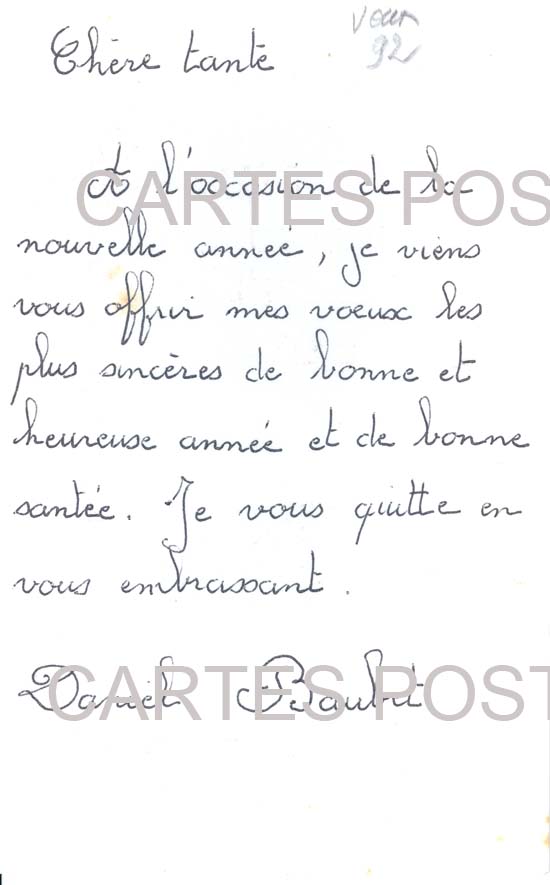 Chère tante
voeux
92
A l'occasion de la
CARTES POST
nouvelle année, je viens
vous offrir mes voeux les
plus sincères de bonne et
heureuse année et de bonne
santée. Je vous quitte en
vous embrassant.
Daniel Baubit
CARTES POST